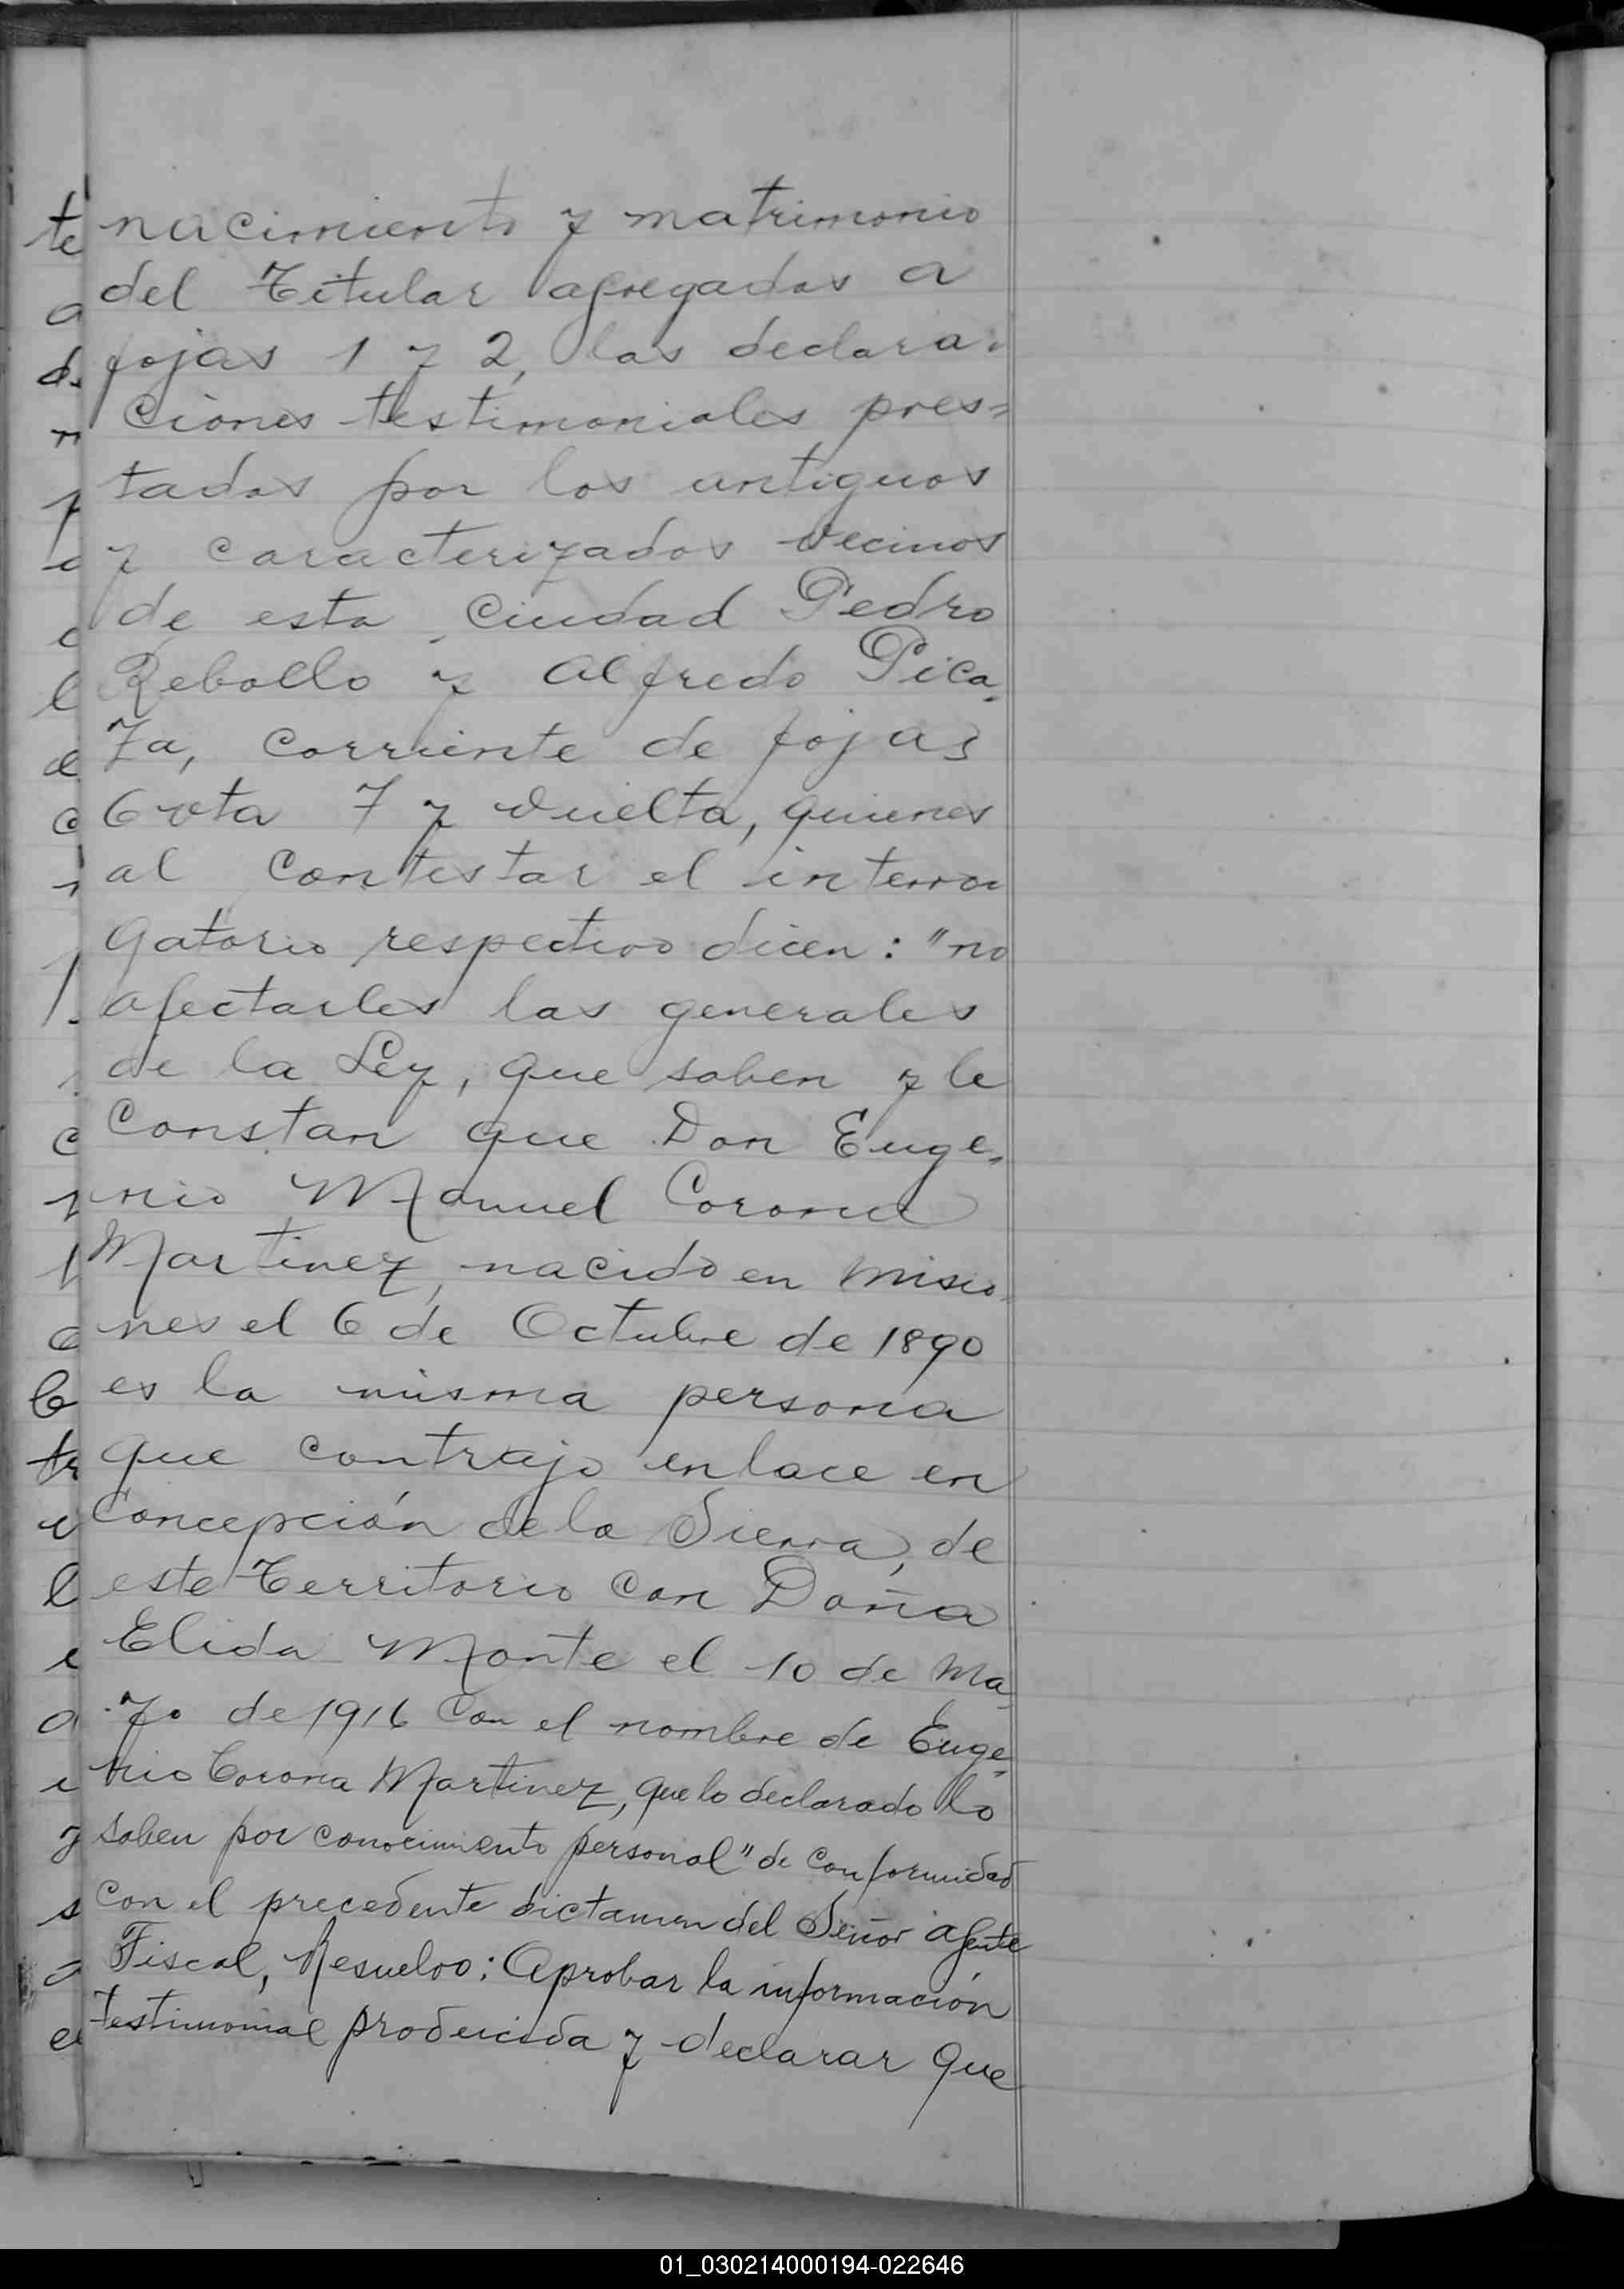 nacimiento y matrimonio
del Titular agregadas a
fojas 1 y 2, las declara-
ciones testimoniales pres=
tadas por los antiguos
y caracterizados vecinos
de esta Ciudad Pedro
Rebollo y Alfredo Pica-
za, corriente de fojas
6 vta 7 y vuelta, quienes
al contestar el interro
gatorio respectivo dicen: "no
afectarles las generales
de la Ley, que saben y le
constan que Don Euge-
nio Manuel Corona
Martinez, nacido en Misio-
nes el 6 de Octubre de 1890
es la misma persona
que contrajo enlace en
Concepción de la Sierra, de
este Territorio con Doña
Elida Monte el 10 de Ma
yo de 1916 con el nombre de Euge-
nio Corona Martinez, que lo declarado lo
saben por conocimiento personal" de conformidad
con el precedente dictamen del Señor Agente
Fiscal, Resuelvo: Aprobar la información
testimonial producida y declarar que
01_030214000194-022646